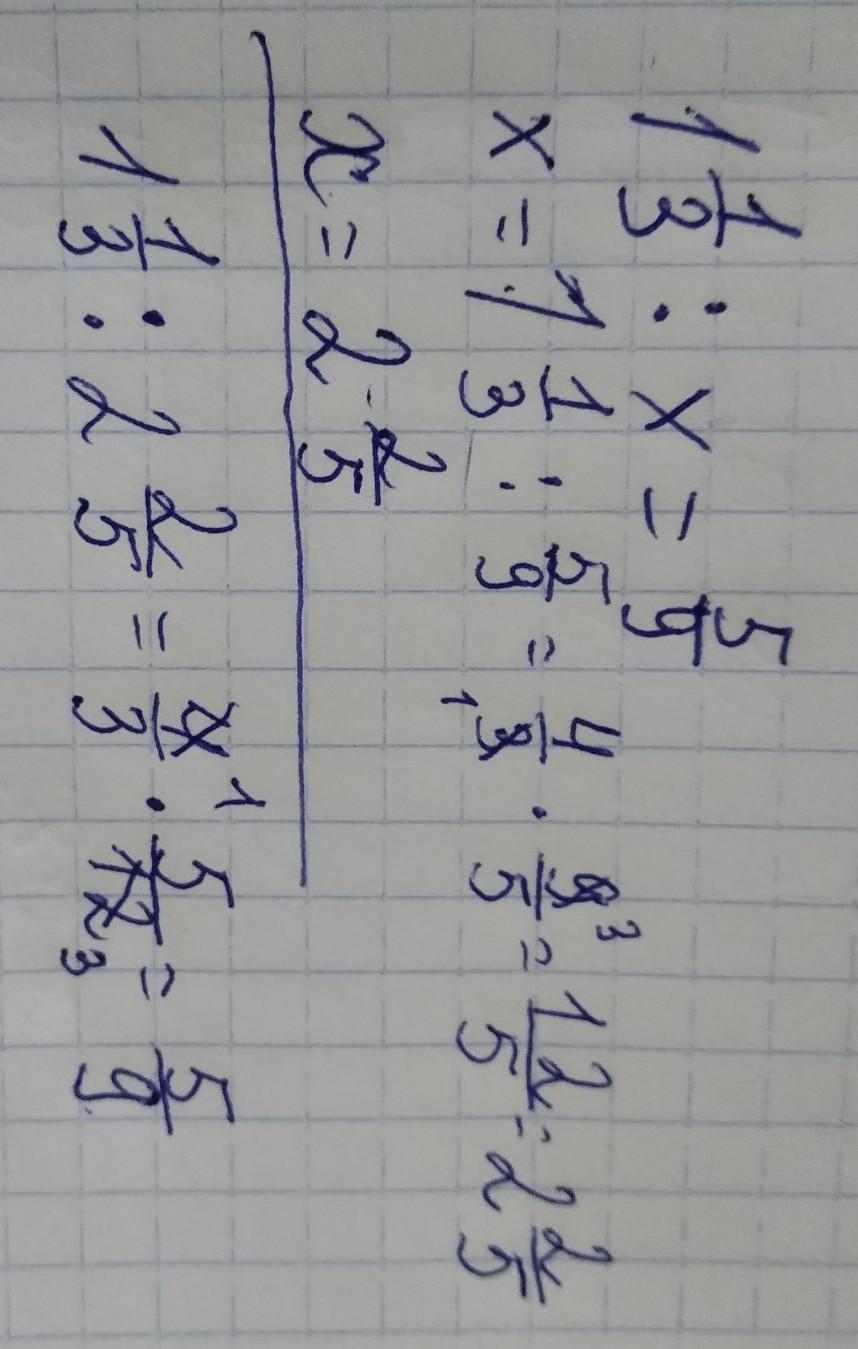 1 1/3 : x = 5/9
x = 1 1/3 : 5/9 = 4/3 1 · 9/5 3 = 12/5 = 2 2/5
x = 2 2/5
1 1/3 : 2 2/5 = 4/3 1 · 5/12 3 = 5/9